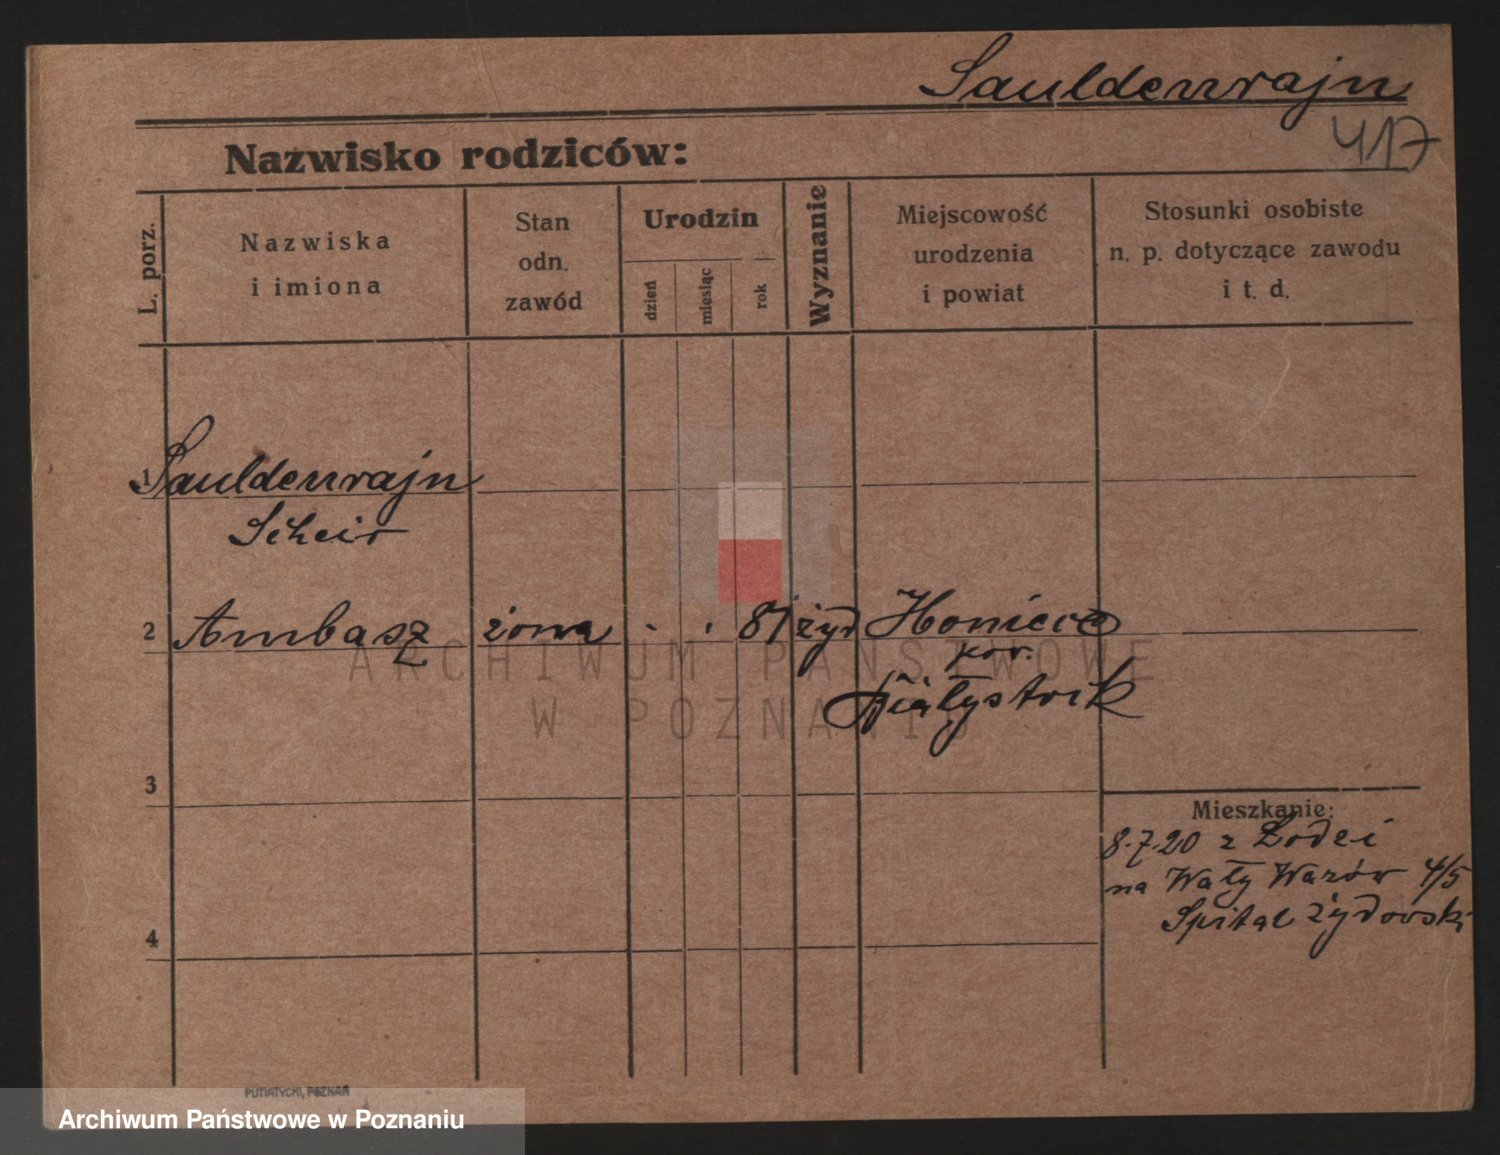 Sauldenrajn
417
Nazwisko rodziców:
L. porz.
Nazwiska
i imiona
Stan
odn.
zawód
Urodzin
dzień
miesiąc
rok
Wyznanie
Miejscowość
urodzenia
i powiat
Stosunki osobiste
n. p. dotyczące zawodu
i t. d.
1 Sauldenrajn
2 Ambasz żona 81 żyd
pow.
Białystok
3
Mieszkanie:
8.7.20 z Łodzi
na Wały Wazów 4/5
Szpital żydowski
4
ARCHIWUM PAŃSTWOWE
W POZNANIU
PUTIATYCKI, POZNAŃ
Archiwum Państwowe w Poznaniu